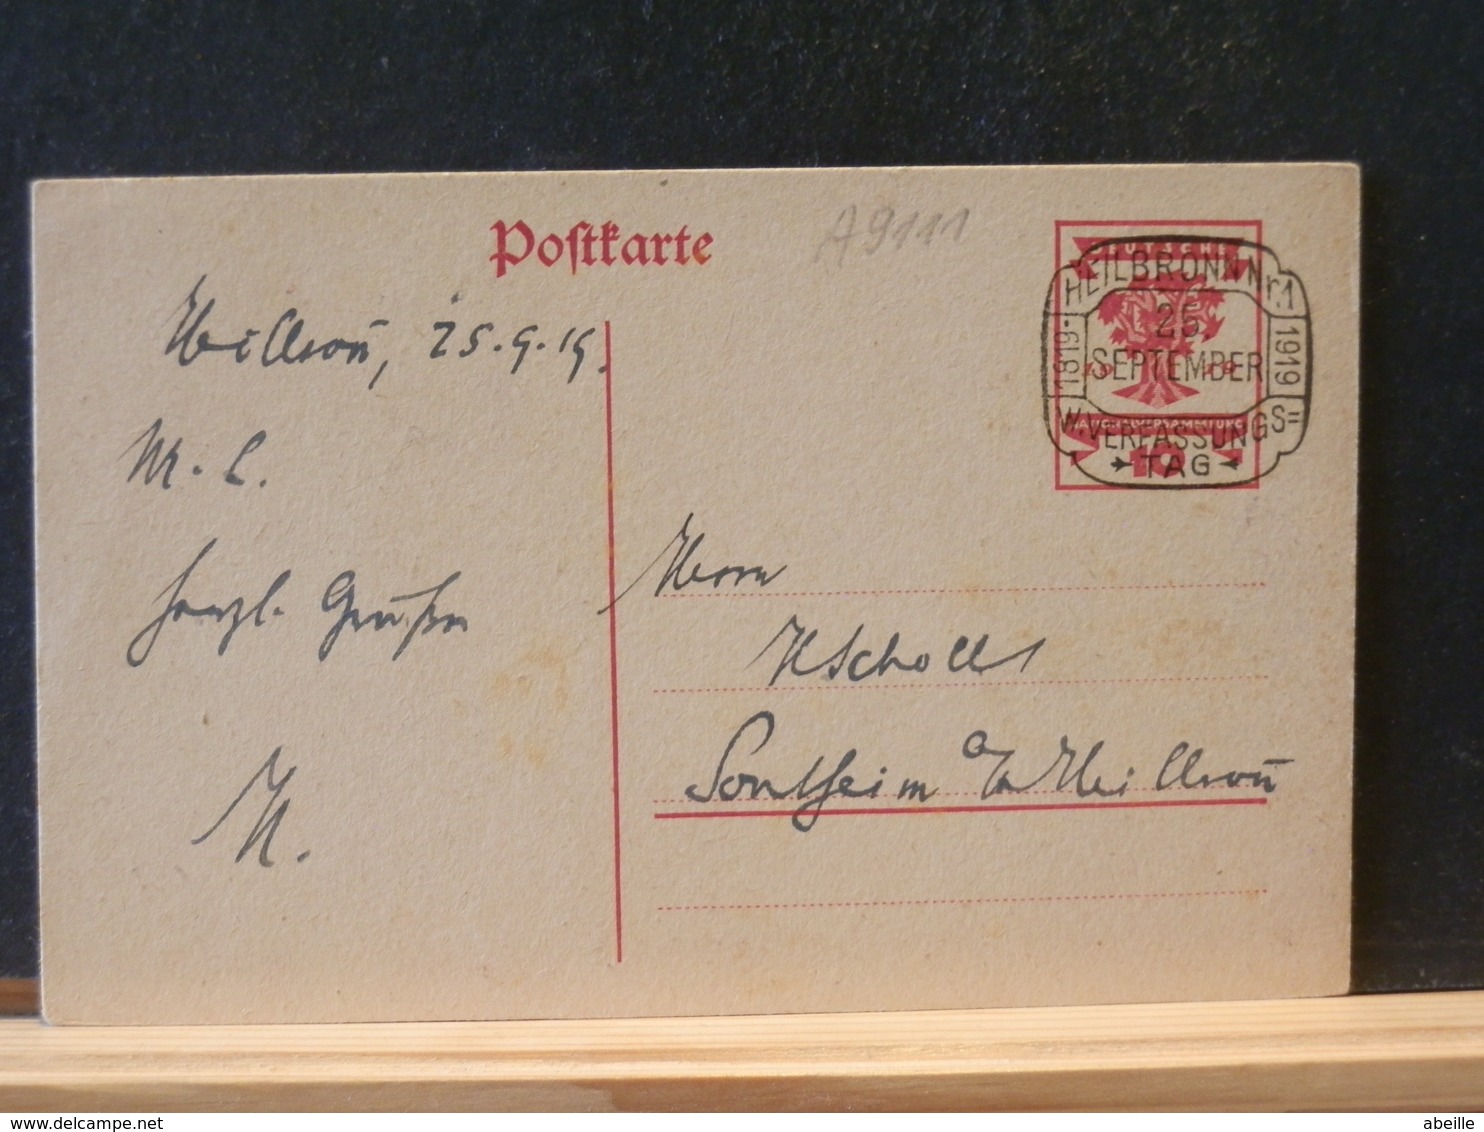 Postkarte
A9111
DEUTSCHE
1919
NATIONALVERSAMMLUNG
10
HEILBRONN Nr.1
25
SEPTEMBER
1819
1919
W.VERFASSUNGS=
TAG
Heilbronn, 25.9.19.
M. L.
herzl. Grüße
H.
Herrn
H Scholl
Sontheim a/n Heilbronn
abeille